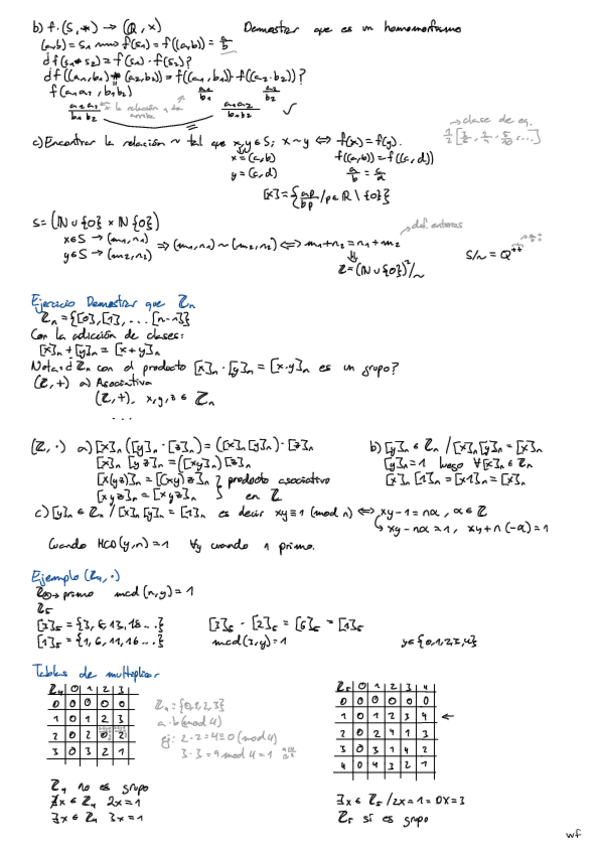 b) f: (S,*) → (Q, x) Demostrar que es un homomorfismo
(a,b) = s₁ ⟿ f(s₁) = f((a,b)) = a/b
d f(s₁*s₂) = f(s₁) · f(s₂)?
d f((a₁,b₁)*(a₂,b₂)) = f((a₁,b₁)) · f((a₂,b₂))?
f(a₁a₂, b₁b₂) a₁/b₁ a₂/b₂
a₁a₂/b₁b₂ a₁a₂/b₁b₂ ✓
→ clase de eq.
c) Encontrar la relación ~ tal que x,y∈S; x~y ⟺ f(x) = f(y).
x = (a,b) f((a,b)) = f((c,d))
y = (c,d) a/b = c/d
[x] = {ap/bp / p∈R \ {0}}
S = (N∪{0} × N{0})
→ def. enteros
x∈S → (m₁,n₁)
y∈S → (m₂,n₂) ⇒ (m₁,n₁) ~ (m₂,n₂) ⟺ m₁+n₂ = n₁+m₂
Z = (N∪{0})²/~
S/~ = Q
Ejercicio Demostrar que Zₙ
Zₙ = {[0],[1], ... [n-1]}
Con la adicción de clases:
[x]ₙ + [y]ₙ = [x+y]ₙ
Nota: d Zₙ con el producto [x]ₙ · [y]ₙ = [x·y]ₙ es un grupo?
(Z,+) a) Asociativa
(Z,+), x,y,z ∈ Zₙ
...
(Z,·) a) [x]ₙ([y]ₙ · [z]ₙ) = ([x]ₙ[y]ₙ) · [z]ₙ
[x]ₙ [yz]ₙ = ([xy]ₙ)[z]ₙ
[x(yz)]ₙ = [(xy)z]ₙ } producto asociativo
[xyz]ₙ = [xyz]ₙ } en Z
b) [y]ₙ ∈ Zₙ / [x]ₙ[y]ₙ = [x]ₙ
[y]ₙ = 1 luego ∀[x]ₙ ∈ Zₙ
[x]ₙ [1]ₙ = [x1]ₙ = [x]ₙ
c) [y]ₙ ∈ Zₙ / [x]ₙ[y]ₙ = [1]ₙ es decir xy ≡ 1 (mod n) ⟺ xy-1 = nα, α∈Z
↳ xy - nα = 1, xy + n(-α) = 1
Cuando MCD(y,n) = 1 ∀y cuando n primo.
Ejemplo (Z₄,·)
→ primo mcd(n,y) = 1
Z₅
[3]₅ = {3, 8, 13, 18...} [3]₅ · [2]₅ = [6]₅ = [1]₅
[1]₅ = {1, 6, 11, 16...} mcd(3,y) = 1 y∈{0,1,2,3,4}
Tablas de multiplicar
Z₄ 0 1 2 3
0 0 0 0 0
1 0 1 2 3
2 0 2 0 2
3 0 3 2 1
Z₄ = {0,1,2,3}
a·b (mod 4)
ej: 2·2 = 4 ≡ 0 (mod 4)
3·3 = 9 mod 4 = 1
Z₄ no es grupo
∄x ∈ Z₄ 2x = 1
∃x ∈ Z₄ 3x = 1
Z₅ 0 1 2 3 4
0 0 0 0 0 0
1 0 1 2 3 4 ←
2 0 2 4 1 3
3 0 3 1 4 2
4 0 4 3 2 1
∃x ∈ Z₅ / 2x = 1 = 0x = 3
Z₅ sí es grupo
wf